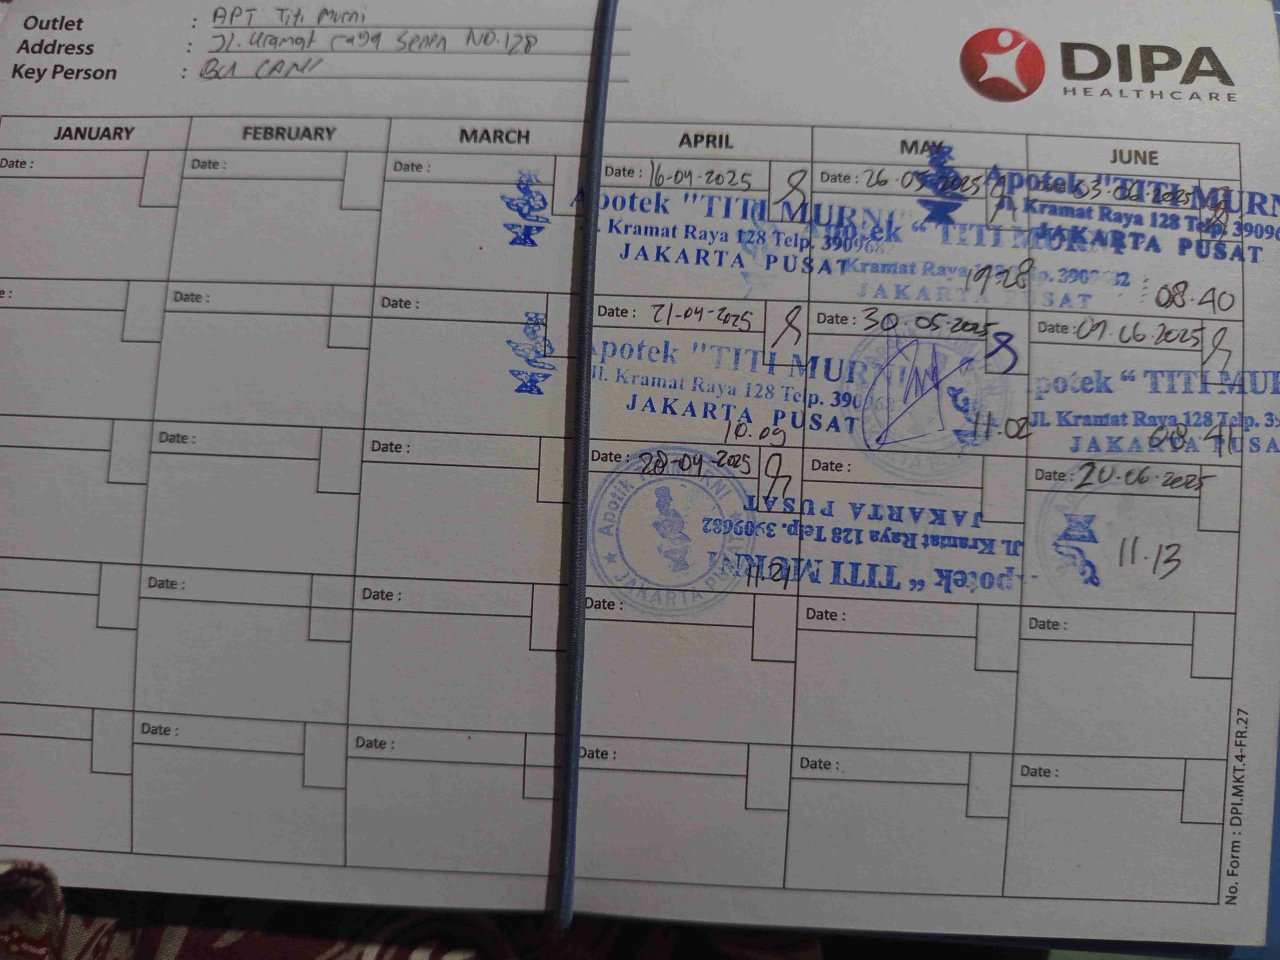 Outlet : APT Titi Murni
Address : Jl. Kramat raya Senen NO.128
Key Person : BU CANI
DIPA
HEALTHCARE
JANUARY FEBRUARY MARCH APRIL MAY JUNE
Date : Date : Date : Date : 16-04-2025 Date : 26-05-2025 03-06-2025
Apotek "TITI MURNI"
Jl. Kramat Raya 128 Telp. 3909682
JAKARTA PUSAT
Apotek “ TITI MURNI
Kramat Raya 128 Telp. 3909682
JAKARTA PUSAT
Apotek "TITI MURN
Jl. Kramat Raya 128 Telp. 39096
JAKARTA PUSAT
08.40
e : Date : Date : Date : 21-04-2025 Date : 30.05.2025 Date : 09.06.2025
Apotek "TITI MURNI
Jl. Kramat Raya 128 Telp. 390968
JAKARTA PUSAT
10.09
11.02
potek “ TITI MUR
Jl. Kramat Raya 128 Telp. 39
JAKARTA PUSA
Date : Date : Date : 28-04-2025 Date : Date : 20.06.2025
JAKARTA PUSAT
Jl. Kramat Raya 128 Telp. 3909682
Apotek “ TITI MURNI
JAKARTA PUSAT
11.13
Date : Date : Date : Date : Date :
Date : Date : Date : Date : Date :
No. Form : DPI.MKT.4-FR.27